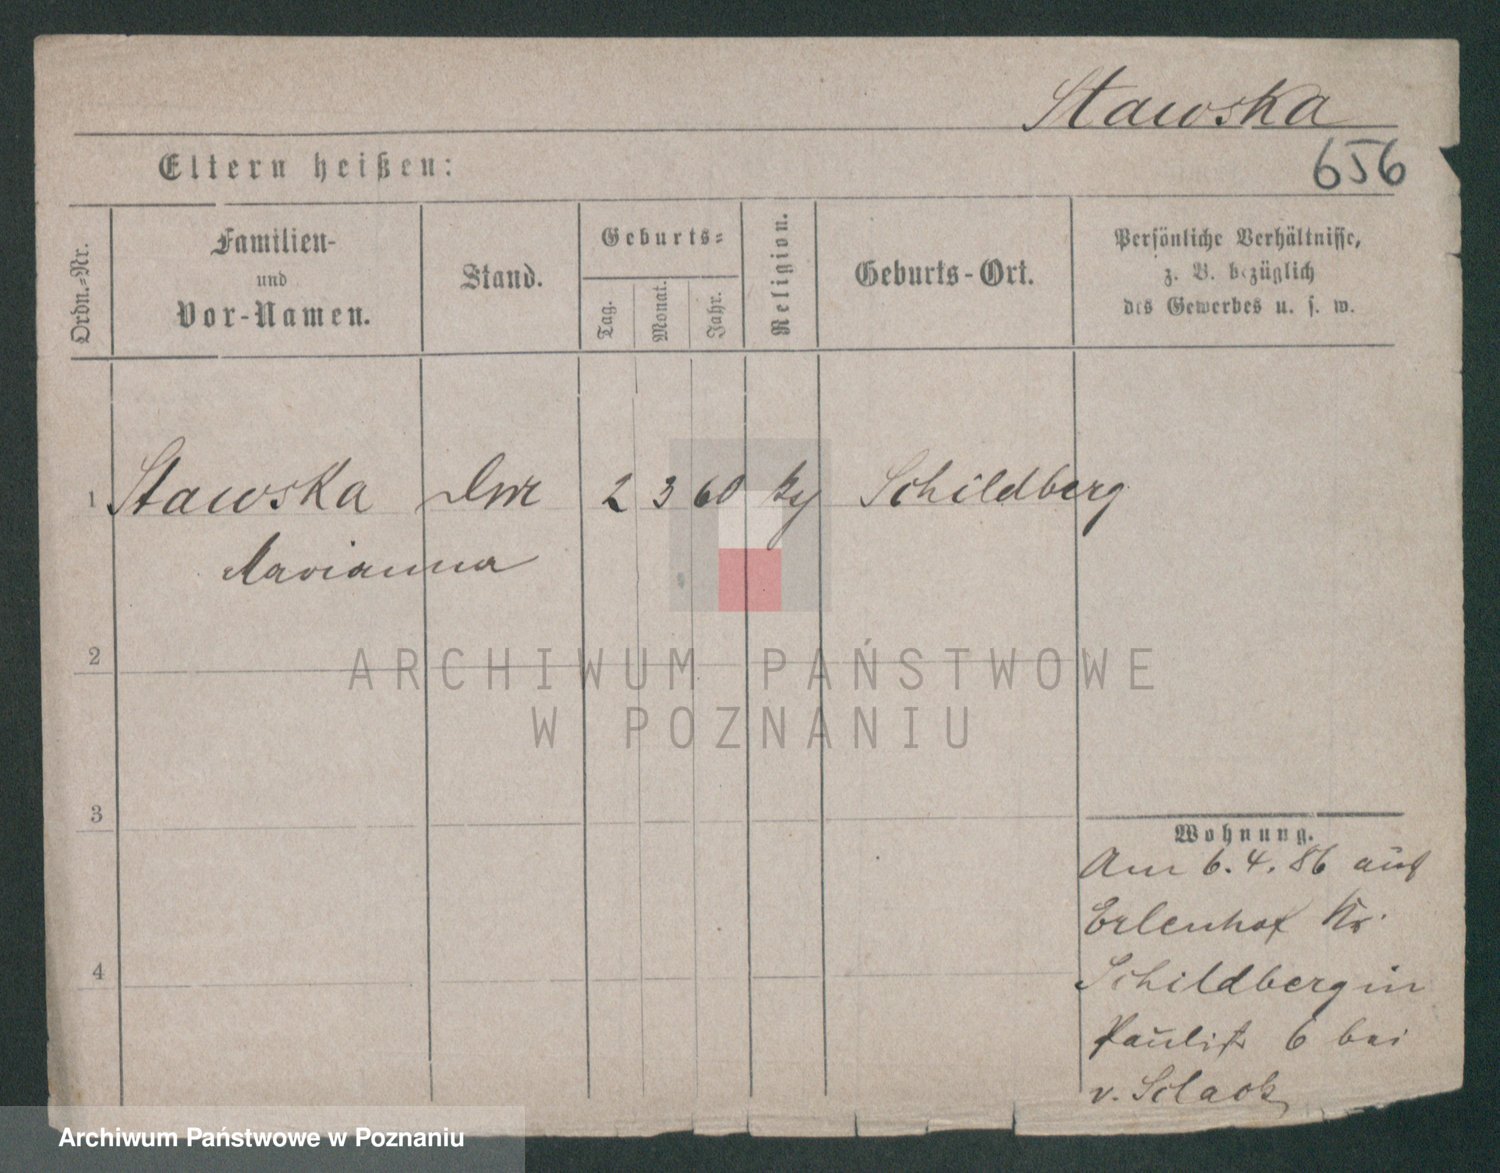 Stawska
656
Eltern heißen:
Ordn.-Nr.
Familien-
und
Vor-Namen.
Stand.
Geburts-
Tag.
Monat.
Jahr.
Religion.
Geburts-Ort.
Persönliche Verhältnisse,
z. B. bezüglich
des Gewerbes u. s. w.
1 Stawska 2 3 60 Schildberg
Marianna
2
3
4
Wohnung.
Am 6.4.86 auf
Erlenhof Kr.
Schildberg in
Paulistr 6 bei
v.
ARCHIWUM PAŃSTWOWE
W POZNANIU
Archiwum Państwowe w Poznaniu